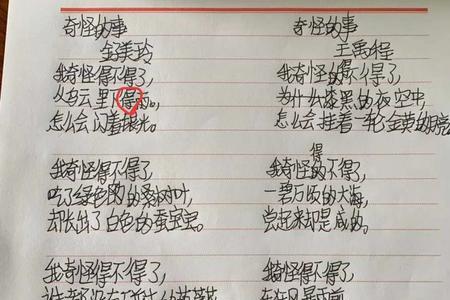 奇怪的事
金美玲
我奇怪得不得了,
从乌云里下得雨。,
怎么会闪着银光。
我奇怪得不得了
吃了绿色的桑树叶,
却长出了白色的蚕宝宝。
我奇怪得不得了,
奇怪的事
王禹程
我奇怪得不得了,
为什么漆黑的夜空中,
怎么会挂着一轮金黄的月亮
得
我奇怪的不得了,
一碧万顷的大海,
尝起来却是咸的。
我奇怪得不得了,